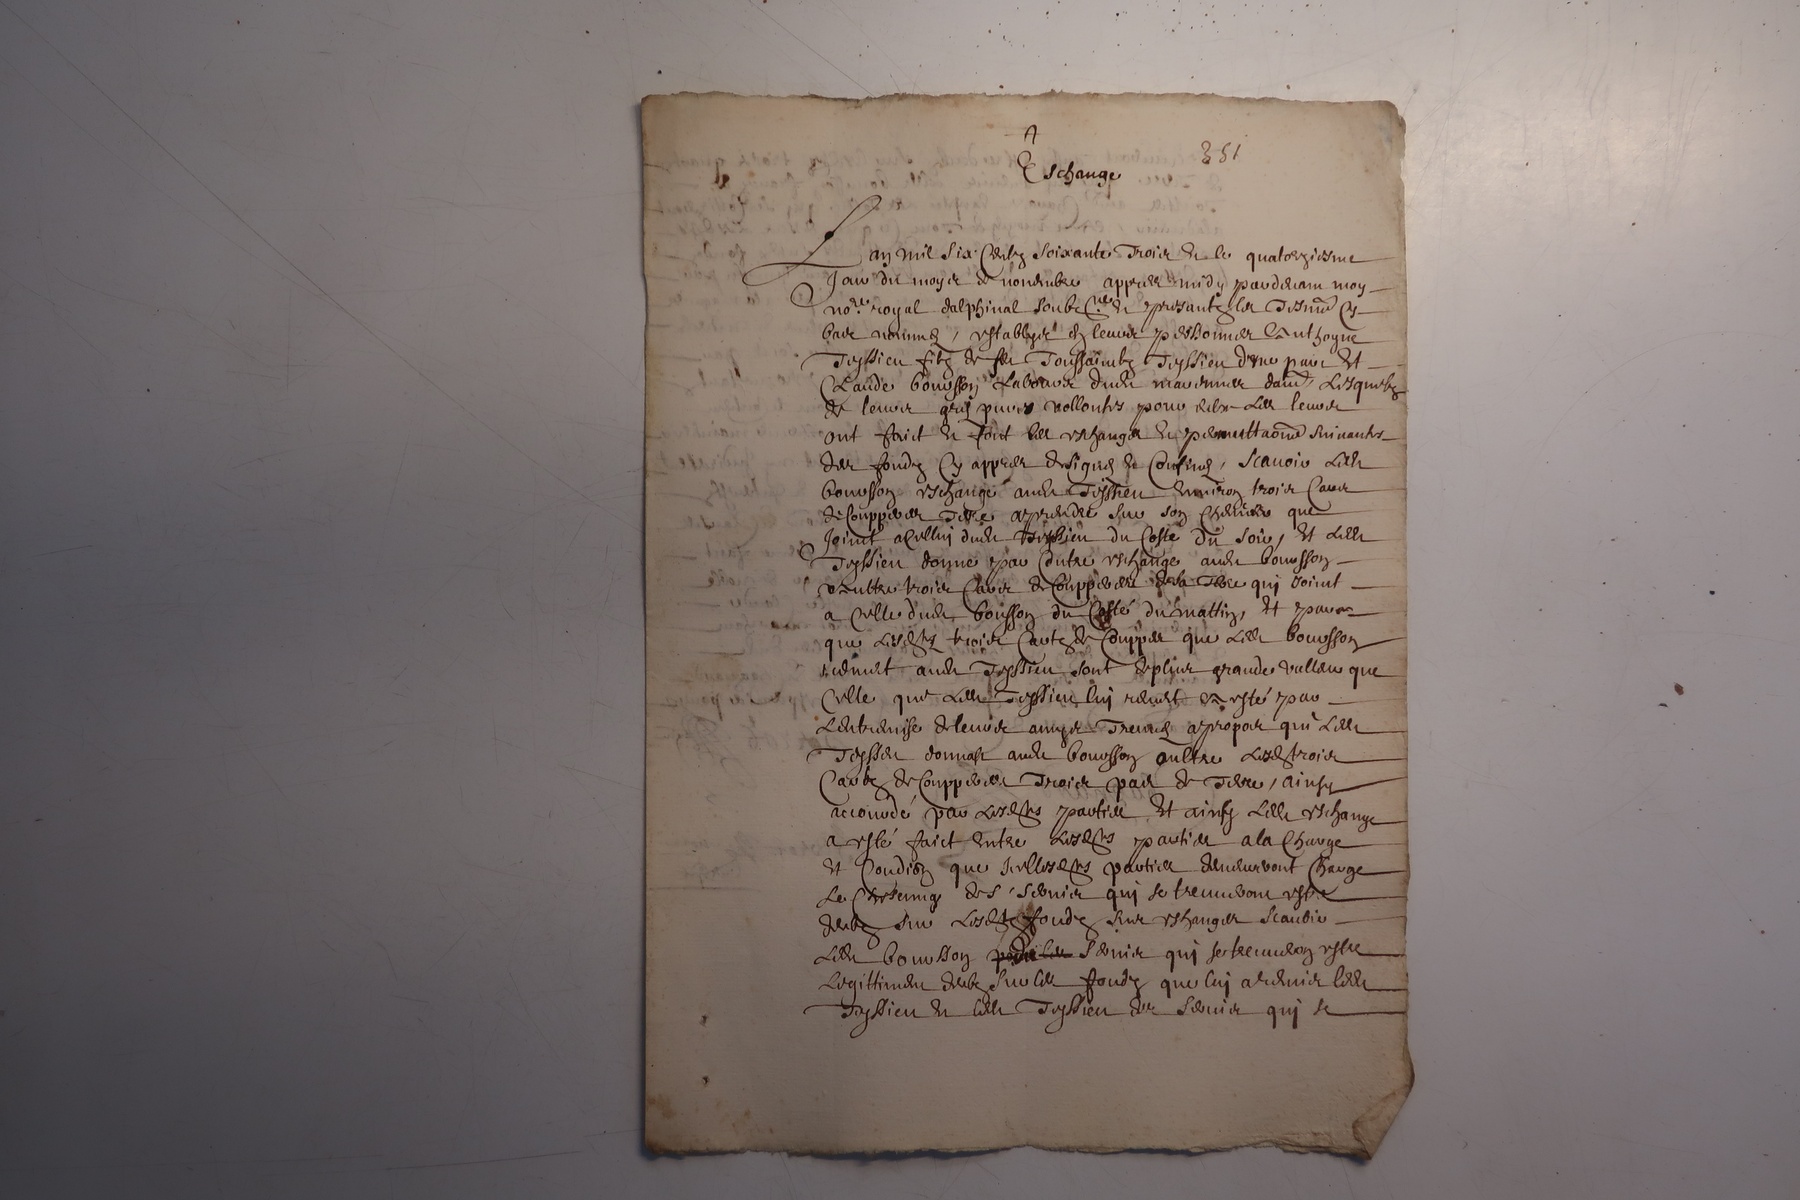 A
351
Eschange
Lan mil six centz soixante trois et le quatorziesme
Jour du moys de novembre appres midy pardevant moy
no.re royal dalphinal soubz.né et presantz les tesmoins cy
bas nommés, establys en leurs personnes Anthoyne
Teyssieu filz de feu Toussainctz Teyssieu d'une part Et
Claude bousson laboureur dudit Lesquels
de leurs gré pures vollontés pour eulx et les leurs
ont faict et font les eschanges et permuttaõns suivantes
des fondz cy appres designés et confinés, scavoir ledit
bousson eschange audit Teyssieu environ trois cartes
de couppées terre a prendre sur son que
Joinct a celluy dudit Teyssieu du costé du soir, Et ledit
Teyssieu donne par contre eschange audit bousson
aultre trois cartes de couppées de sa terre qui joint
a celle dudit bousson du costé du mattin, Et par ce
que lesdites trois cartes de couppées que ledit bousson
remet audit Teyssieu sont de plus grande valleur que
celle que ledit Teyssieu luy remet a esté par
Lentremise de leurs amys treuvé a propos que ledit
Teyssieu donnast audit bousson oultre lesdites trois
cartes de couppées trois pas de terre, ainsy
accordé par lesdites parties Et ainsy ledit eschange
a esté faict entre lesdites parties a la charge
et condi͠on que Icellesdites parties demeureront charge
Le des servis qui se treuveront estre
debz sur lesdits fondz sus eschanges scavoir
ledit bousson servis qui se treuveron estre
Legittimes debz sur les fondz que luy a remis ledit
Teyssieu et ledit Teyssieu des servis qui se